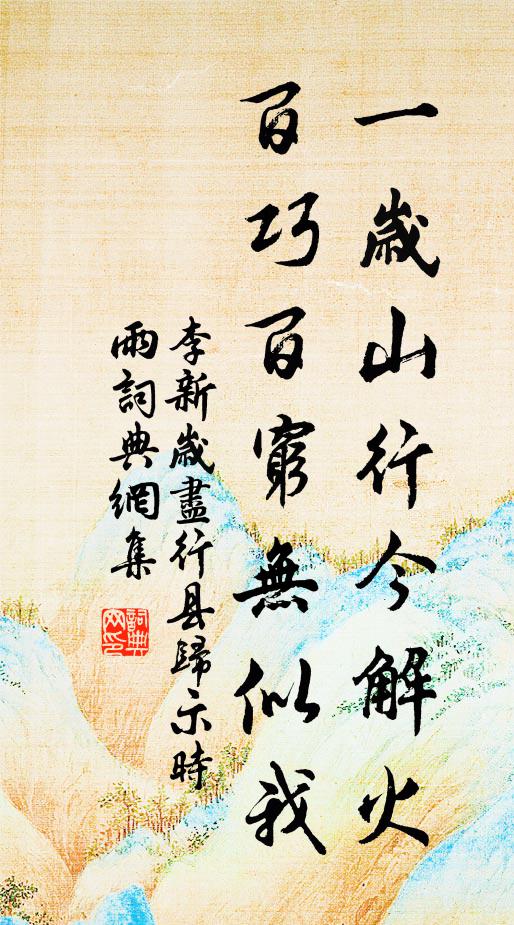 一歲山行今解火
百巧百窮無似我
李新歲盡行县歸示時
雨詞典網集
詞典